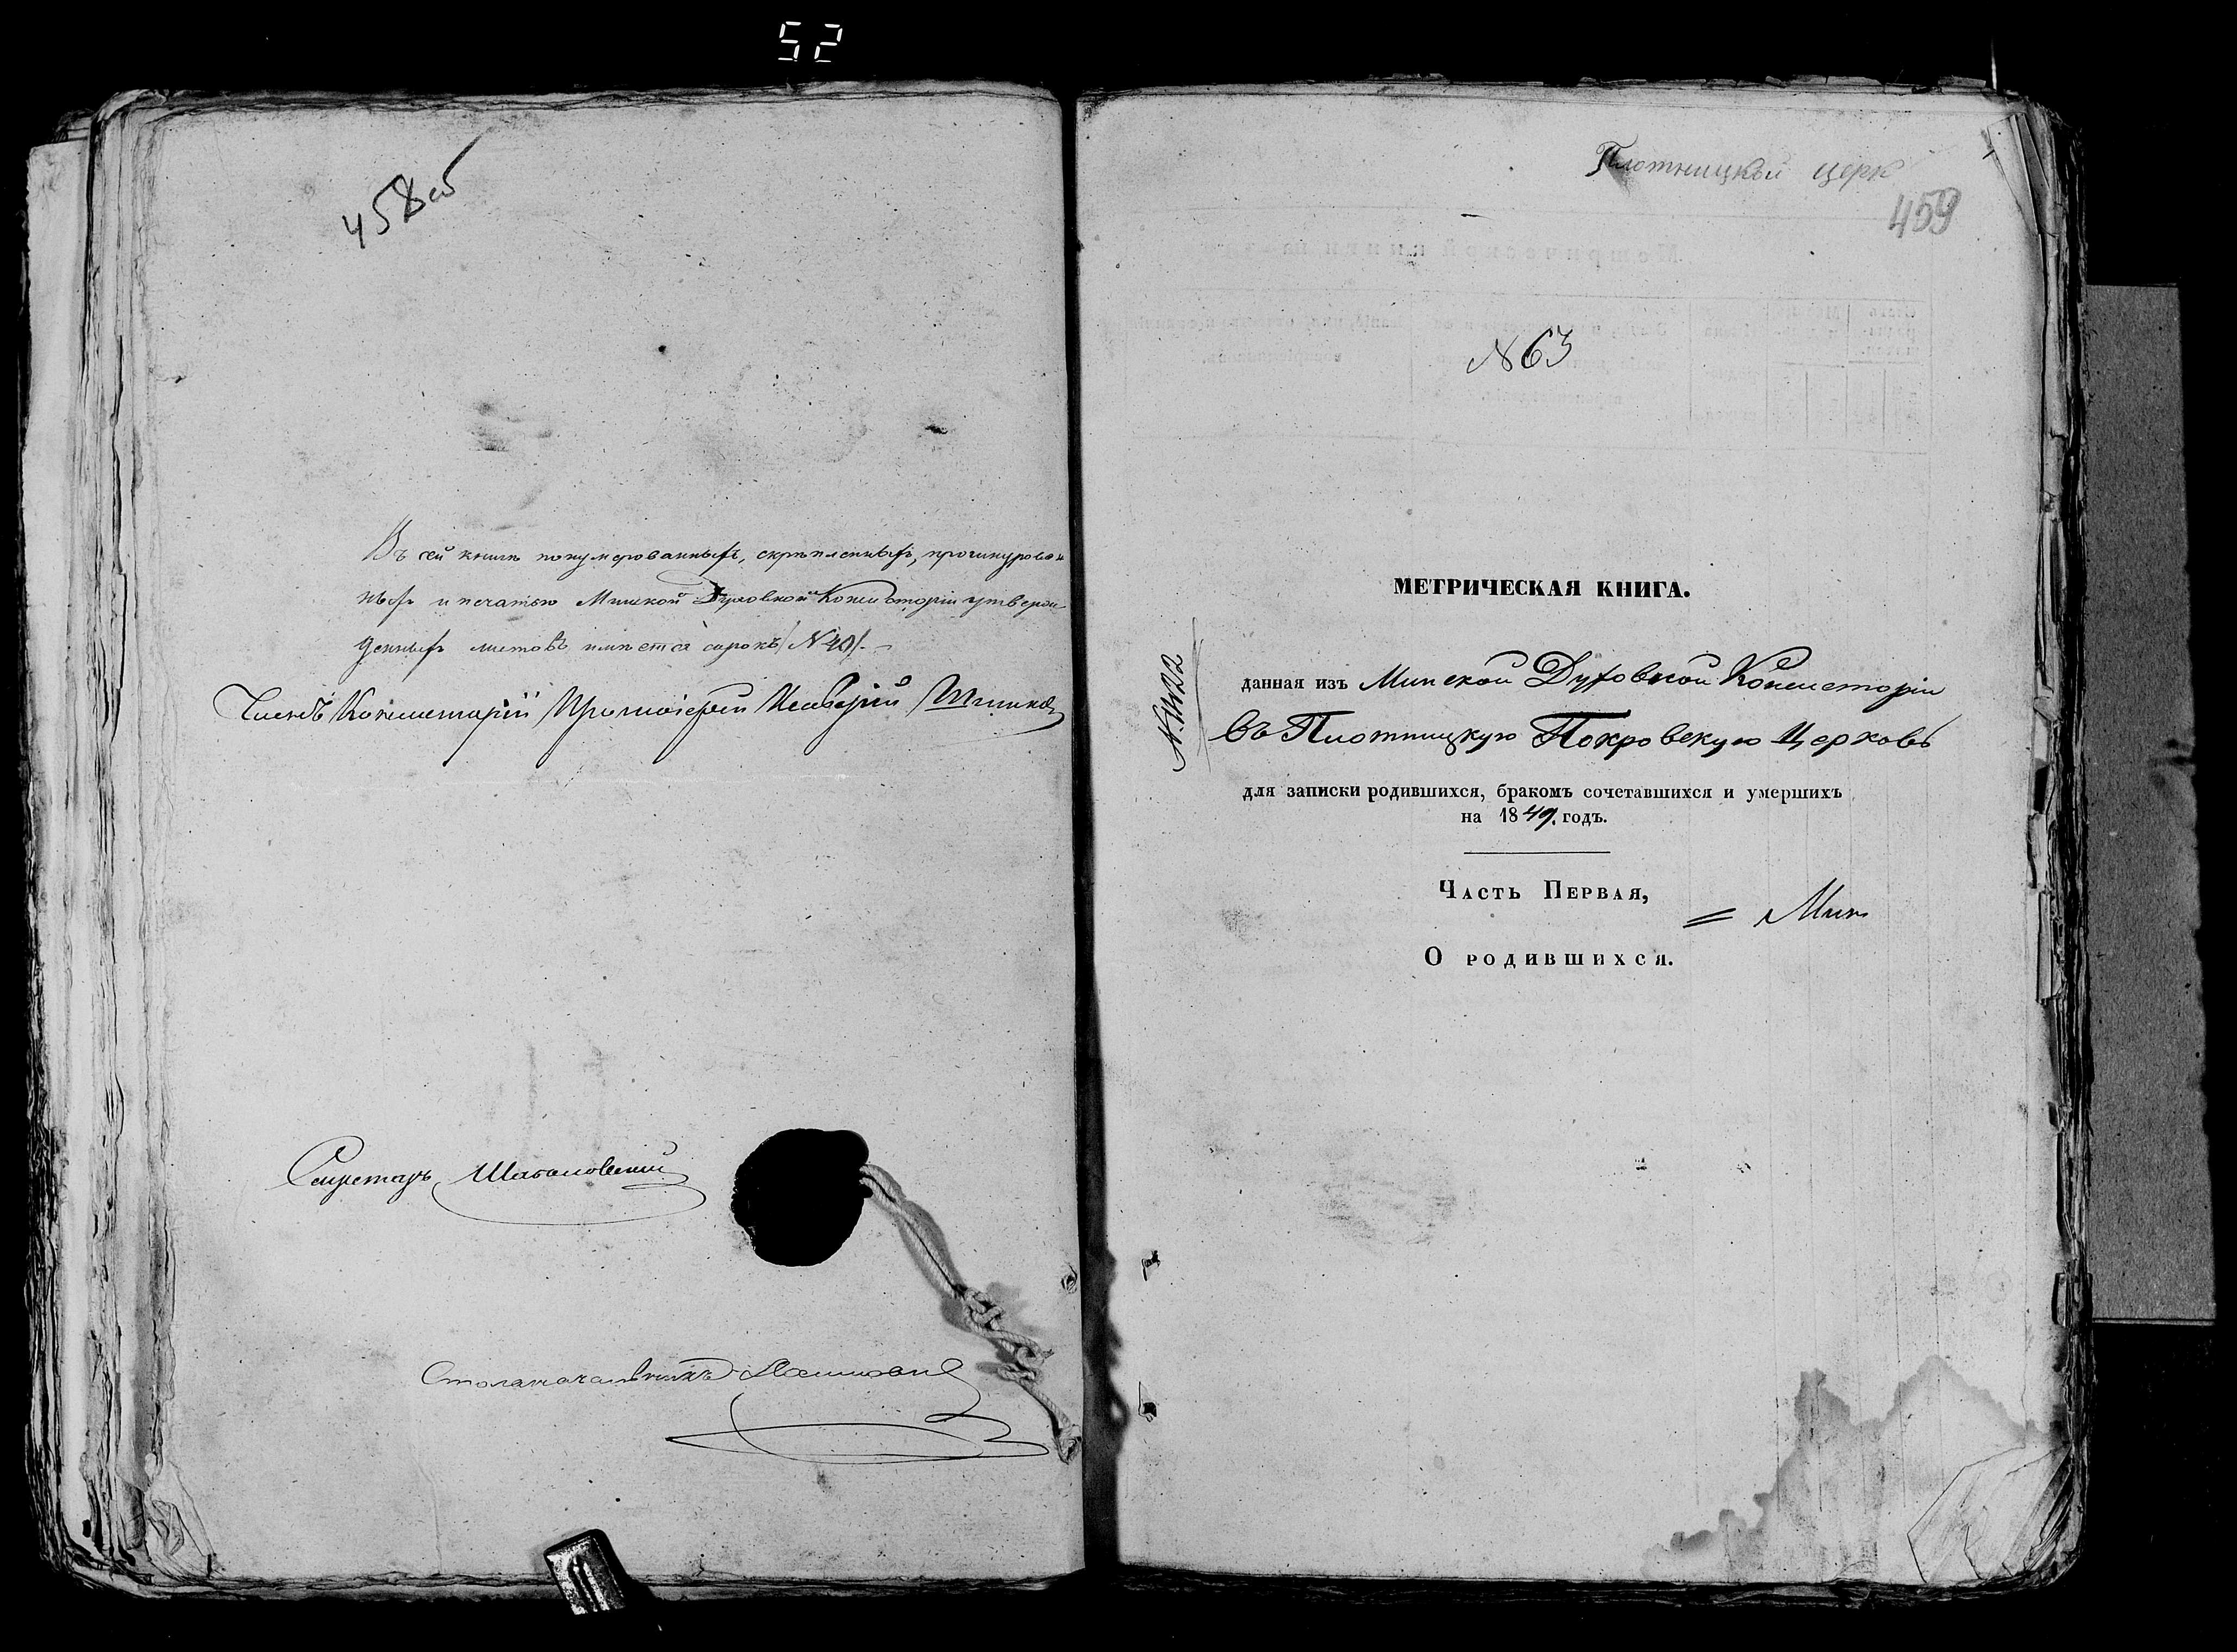 52
458 об
Въ сей книгѣ нонумерованныхъ, скрѣпленныхъ, прошнурован
ныхъ и печатью Минской Духовной Консисторіи утверж
денныхъ листовъ имѣется сорокъ / N 40 /. –
Членъ Консисторіи Протоіерей
Секретарь
Столоначальникъ
Плотницкой церк
459
N 63
МЕТРИЧЕСКАЯ КНИГА.
данная изъ Минской Духовной Консисторіи
въ Плотницкую Покровскую Церковь
для записки родившихся, бракомъ сочетавшихся и умершихъ
на 1849. годъ.
ЧАСТЬ ПЕРВАЯ,
= Мин
О РОДИВШИХСЯ.